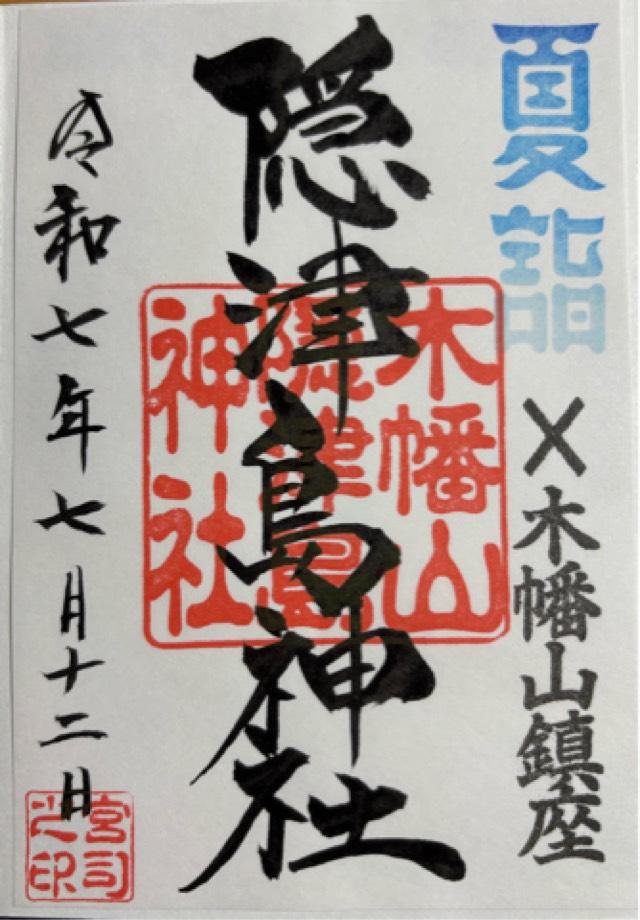 夏詣
×木幡山鎮座
隠津島神社
木幡山
隠津島
神社
令和七年七月十二日
宮司
之印